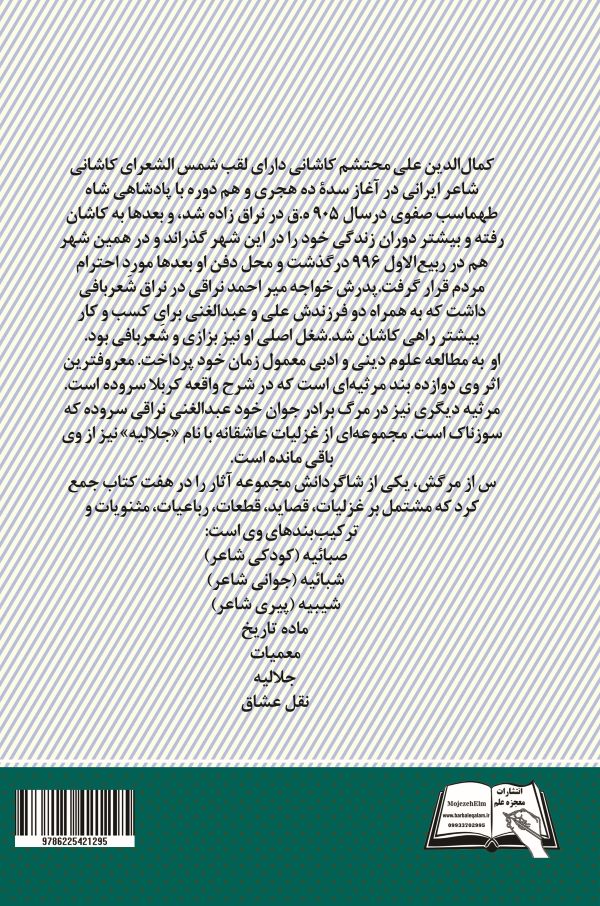 کمال‌الدین علی محتشم کاشانی دارای لقب شمس الشعرای کاشانی
شاعر ایرانی در آغاز سدهٔ ده هجری و هم دوره با پادشاهی شاه
طهماسب صفوی درسال ۹۰۵ ه.ق در نراق زاده شد، و بعدها به کاشان
رفته و بیشتر دوران زندگی خود را در این شهر گذراند و در همین شهر
هم در ربیع‌الاول ۹۹۶ درگذشت و محل دفن او بعدها مورد احترام
مردم قرار گرفت.پدرش خواجه میر احمد نراقی در نراق شَعربافی
داشت که به همراه دو فرزندش علی و عبدالغنی برای کسب و کار
بیشتر راهی کاشان شد.شغل اصلی او نیز بزازی و شَعربافی بود.
او به مطالعه علوم دینی و ادبی معمول زمان خود پرداخت. معروفترین
اثر وی دوازده بند مرثیه‌ای است که در شرح واقعه کربلا سروده است.
مرثیه دیگری نیز در مرگ برادر جوان خود عبدالغنی نراقی سروده که
سوزناک است. مجموعه‌ای از غزلیات عاشقانه با نام «جلالیه» نیز از وی
باقی مانده است.
س از مرگش، یکی از شاگردانش مجموعه آثار را در هفت کتاب جمع
کرد که مشتمل بر غزلیات، قصاید، قطعات، رباعیات، مثنویات و
ترکیب‌بندهای وی است:
صبائیه (کودکی شاعر)
شبائیه (جوانی شاعر)
شیبیه (پیری شاعر)
ماده تاریخ
معمیات
جلالیه
نقل عشاق
انتشارات
معجزه علم
MojezehElm
www.barbaleqalam.ir
09933702995
9786225421295